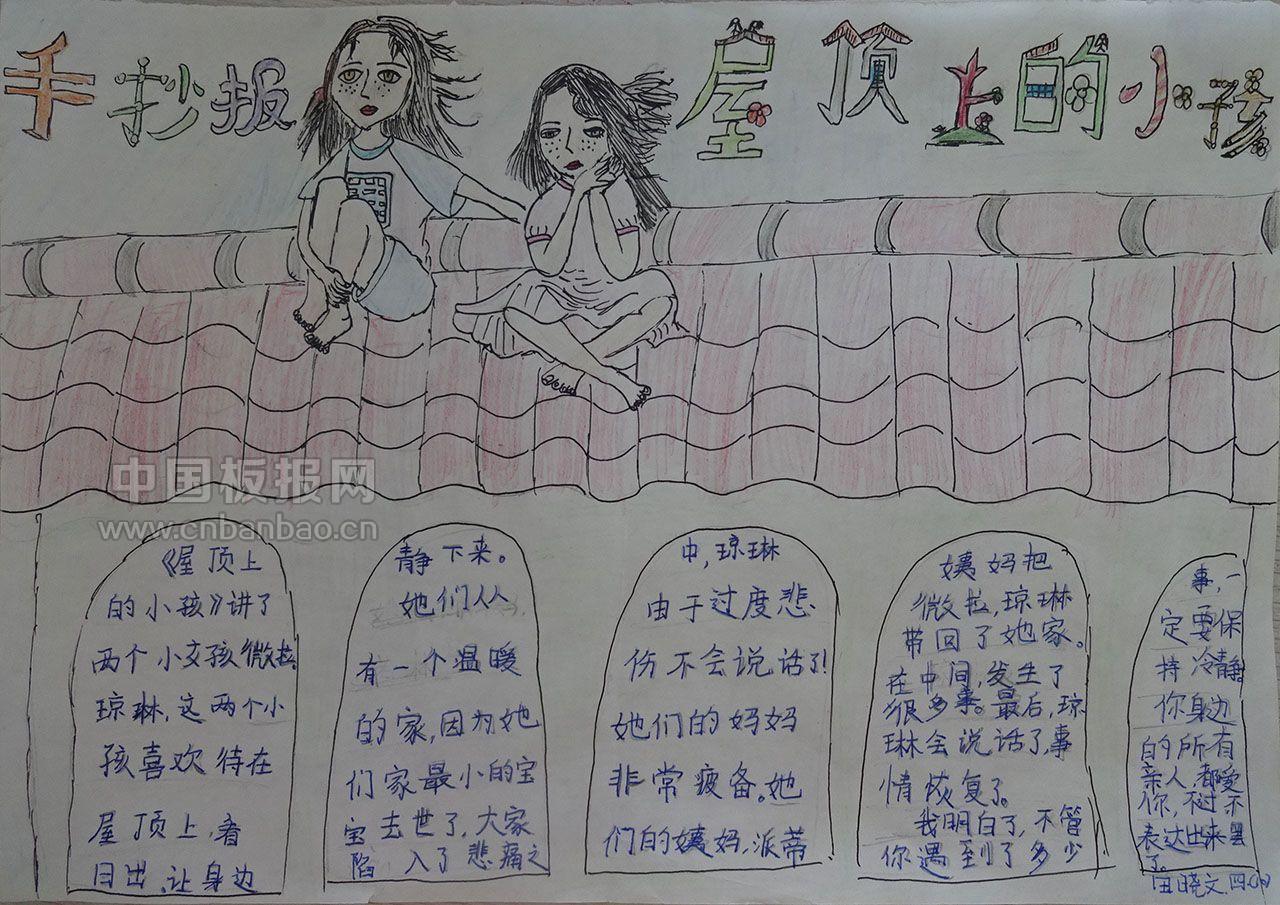 手抄报
屋顶上的小孩
中国板报网
www.cnbanbao.cn
《屋顶上
的小孩》讲了
两个小女孩微拉。
琼琳，这两个小
孩喜欢待在
屋顶上，看
日出，让身边
静下来。
她们从
有一个温暖
的家，因为她
们家最小的宝
宝去世了，大家
陷入了悲痛之
中，琼琳
由于过度悲
伤不会说话了！
她们的妈妈
非常疲备。她
们的姨妈，派蒂
姨妈把
微拉，琼琳
带回了她家。
在中间，发生了
很多事。最后，琼
琳会说话了，事
情恢复了。
我明白了，不管
你遇到了多少
事，一
定要保
持冷静。
你身边
的所有
亲人，都爱
你，不过不
表达出来罢
了。
田晓文.四